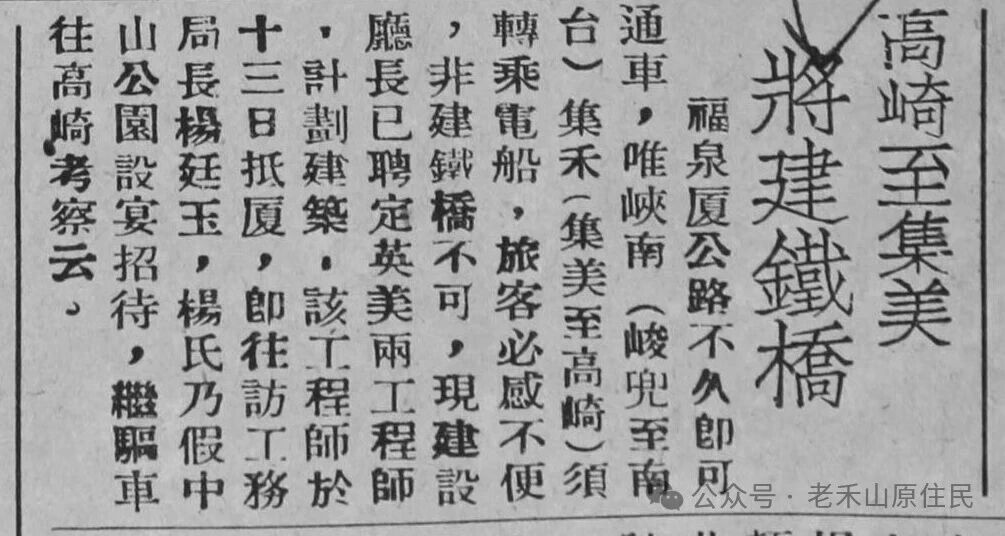 高崎至集美
將建鐵橋
福泉厦公路不久卽可
通車，唯峽南（峻兜至南
台）集禾（集美至高崎）須
轉乘電船，旅客必感不便
，非建鐵橋不可，現建設
廳長已聘定英美兩工程師
，計劃建築，該工程師於
十三日抵厦，卽往訪工務
局長楊廷玉，楊氏乃假中
山公園設宴招待，繼驅車
往高崎考察云。
公众号·老禾山原住民